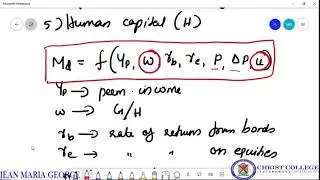 5) Human capital (H)
Md = f (Yp, w, rb, re, P, ΔP, u)
Yp → perm. income
w → G/H
rb → rate of returns from bonds
re → " " on equities
JEAN MARIA GEORGE
CHRIST COLLEGE